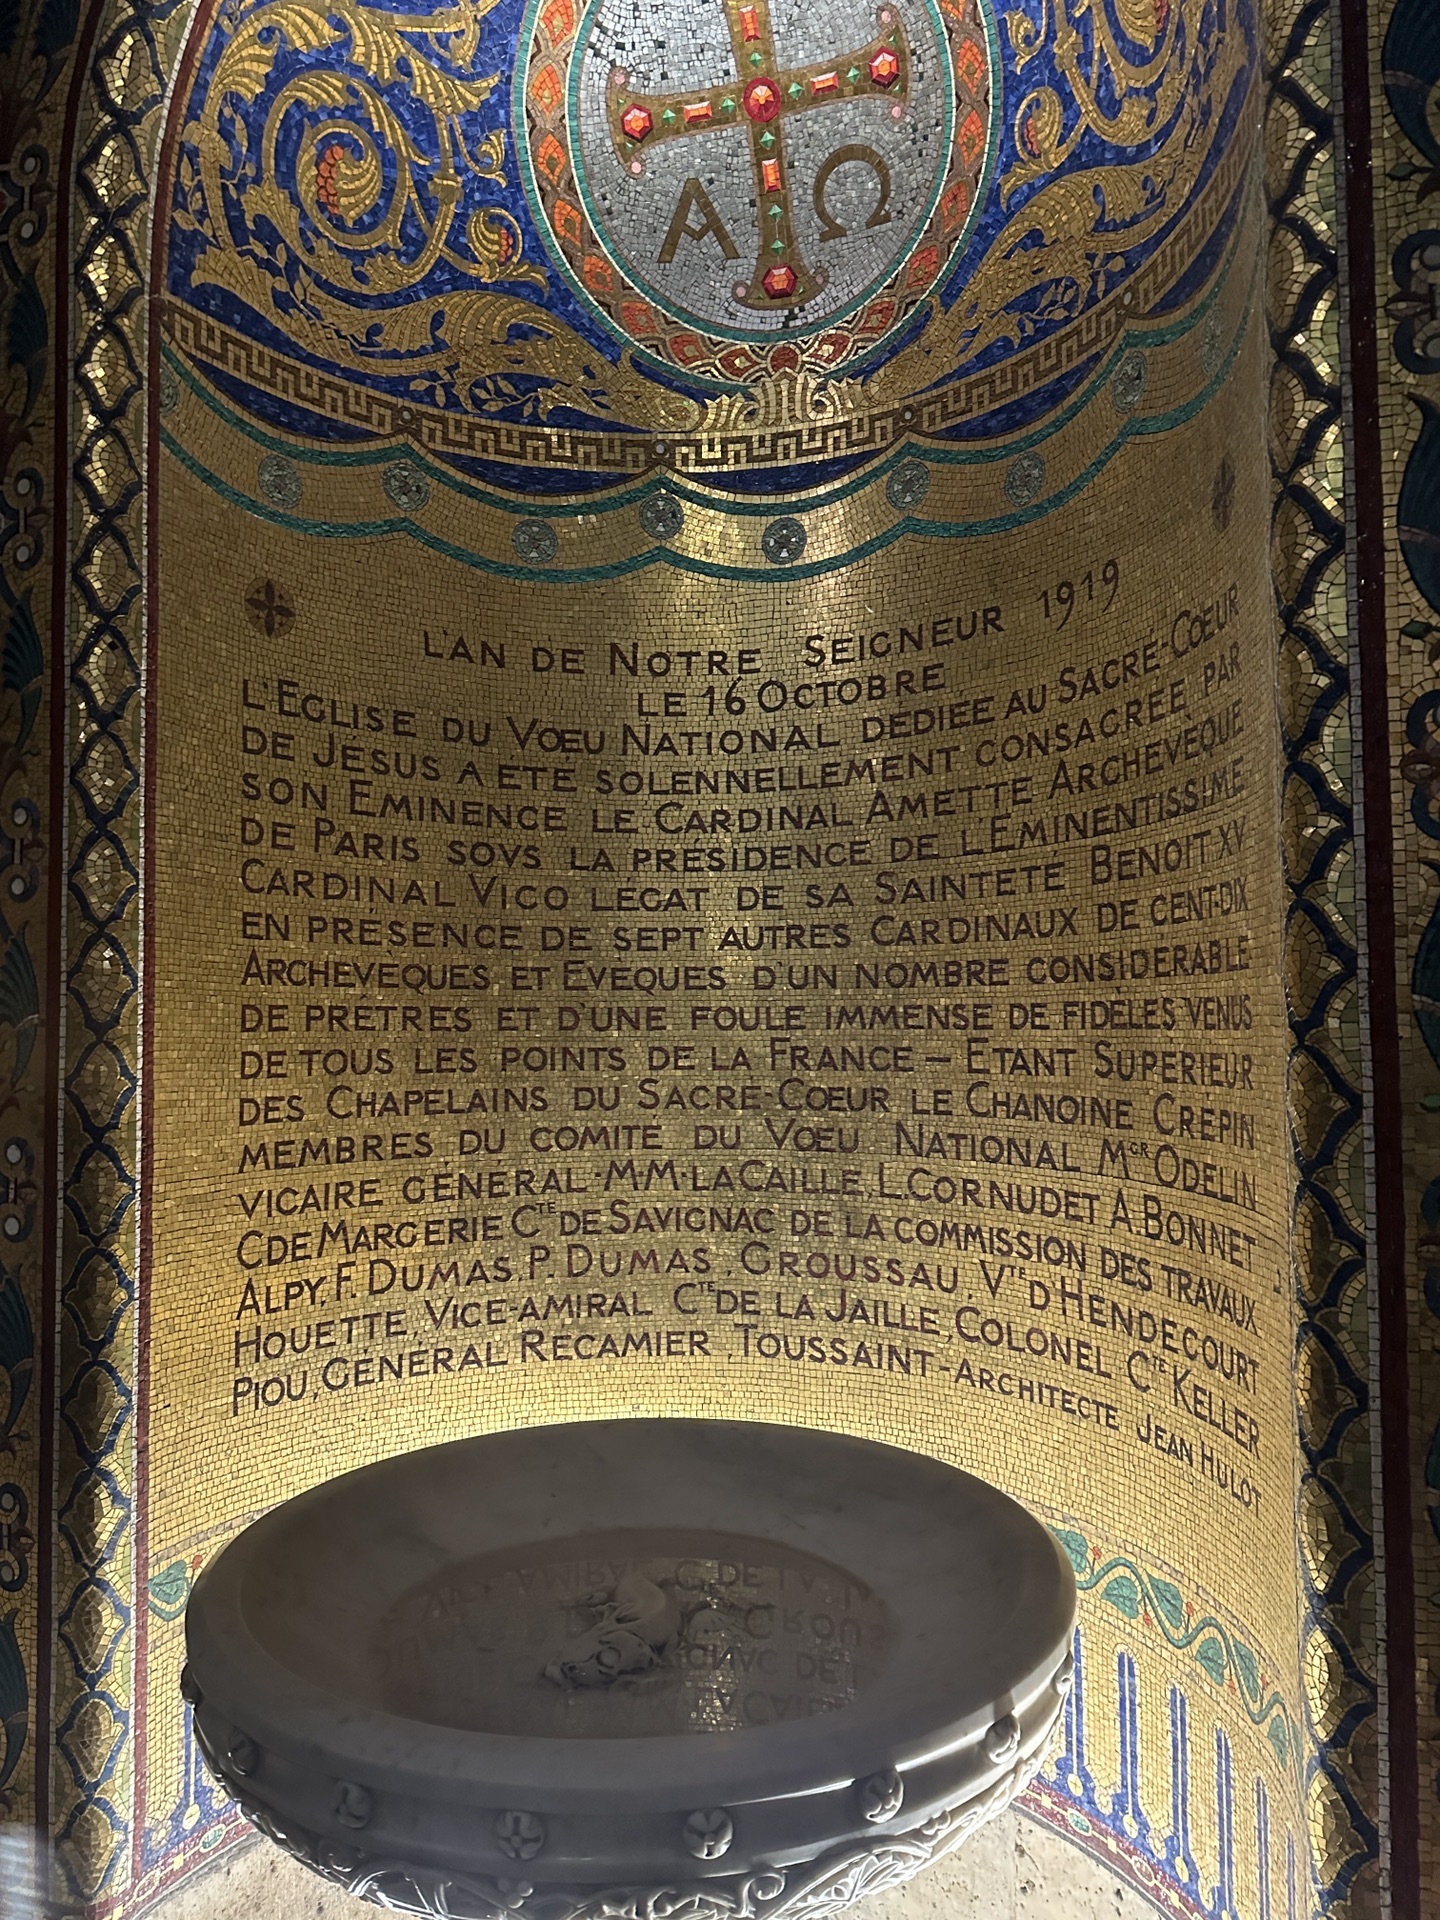 Α Ω
L'AN DE NOTRE SEIGNEUR 1919
LE 16 OCTOBRE
L'EGLISE DU VŒU NATIONAL DÉDIÉE AU SACRÉ-CŒUR
DE JESUS A ETE SOLENNELLEMENT CONSACRÉE PAR
SON EMINENCE LE CARDINAL AMETTE ARCHEVÈQUE
DE PARIS SOVS LA PRÉSIDENCE DE L'EMINENTISSIME
CARDINAL VICO LÉGAT DE SA SAINTETÉ BENOIT XV
EN PRÉSENCE DE SEPT AUTRES CARDINAUX DE CENT-DIX
ARCHEVÈQUES ET EVÈQUES D'UN NOMBRE CONSIDERABLE
DE PRÊTRES ET D'UNE FOULE IMMENSE DE FIDÈLES VENUS
DE TOUS LES POINTS DE LA FRANCE – ETANT SUPERIEUR
DES CHAPELAINS DU SACRÉ-CŒUR LE CHANOINE CREPIN
MEMBRES DU COMITÉ DU VŒU NATIONAL MGR ODELIN
VICAIRE GÉNÉRAL-M.M. LACAILLE, L.CORNUDET A.BONNET
C DE MARGERIE CTE DE SAVIGNAC DE LA COMMISSION DES TRAVAUX
ALPY, F. DUMAS, P. DUMAS, GROUSSAU, VTE D'HENDECOURT
HOUETTE, VICE-AMIRAL CTE DE LA JAILLE, COLONEL CTE KELLER
PIOU, GÉNÉRAL RECAMIER, TOUSSAINT-ARCHITECTE JEAN HULOT